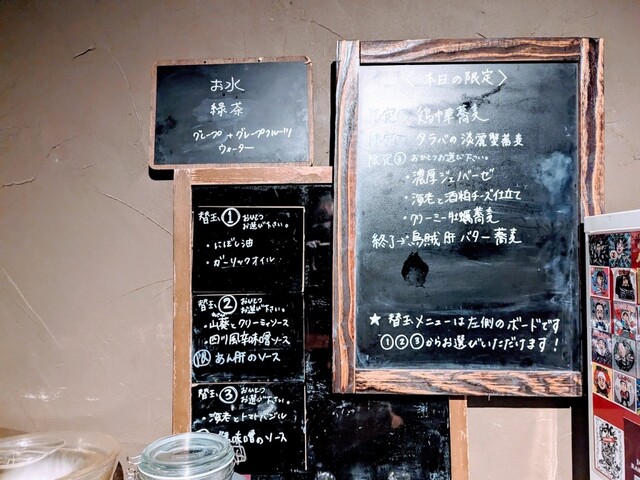 お水
緑茶
グレープ+グレープフルーツ
ウォーター
替玉①おひとつ
お選び下さい。
・にぼし油
・ガーリックオイル
替玉②おひとつ
お選び下さい。
・山葵とクリーミィソース
・四川風辛味噌ソース
あん肝のソース
替玉③おひとつ
お選び下さい。
・海老とトマトバジル
味噌のソース
〈本日の限定〉
鶏中華蕎麦
タラバの淡麗蟹蕎麦
限定③おひとつお選び下さい。
・濃厚ジェノベーゼ
・海老と酒粕チーズ仕立て
・クリーミー牡蠣蕎麦
終了→烏賊肝バター蕎麦
★替玉メニューは左側のボードです
①②③からお選びいただけます!